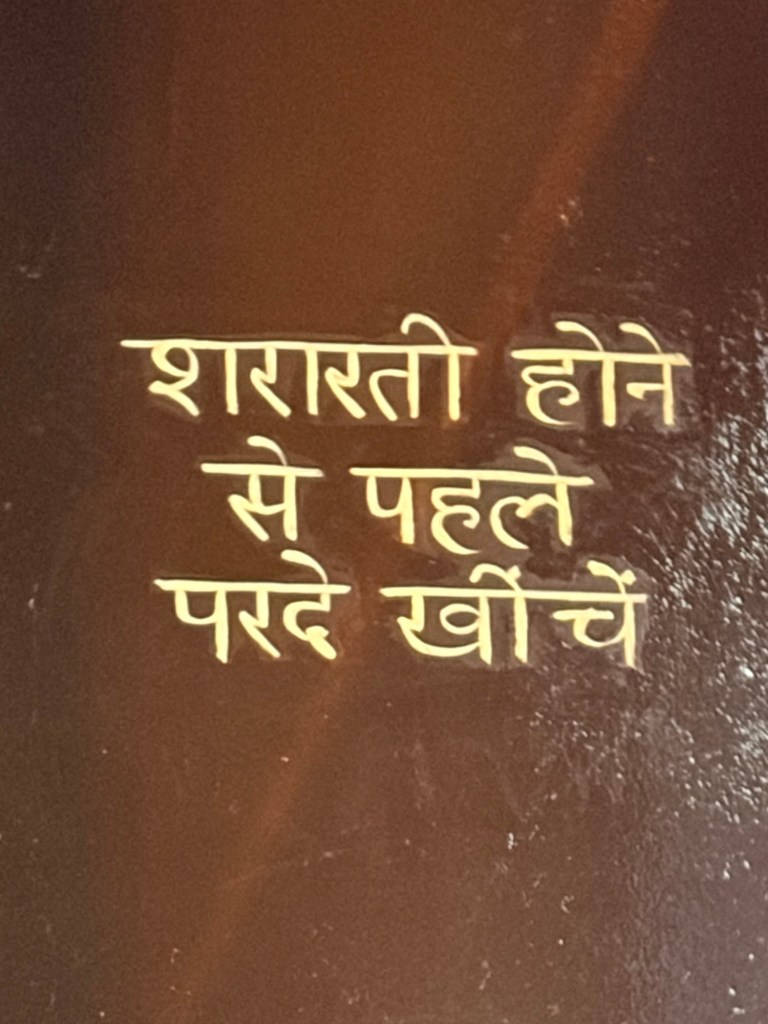 शरारती होने
से पहले
परदे खींचें